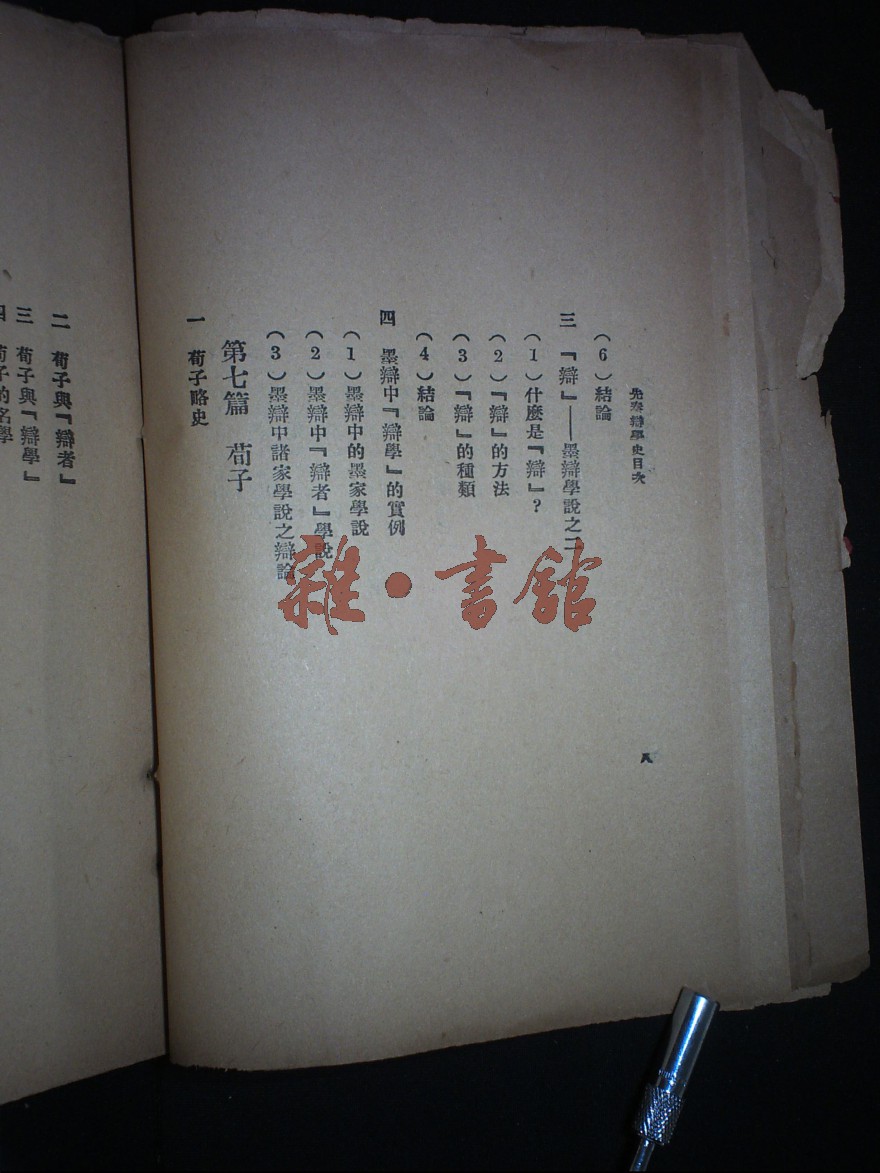 先秦辯學史目次
（6）結論
三　『辯』——墨辯學說之二
（1）什麼是『辯』？
（2）『辯』的方法
（3）『辯』的種類
（4）結論
四　墨辯中『辯學』的實例
（1）墨辯中的墨家學說
（2）墨辯中『辯者』學說
（3）墨辯中諸家學說之辯論
第七篇　荀子
一　荀子略史
八
二　荀子與『辯者』
三　荀子與『辯學』
四　荀子的名學
雜·書館